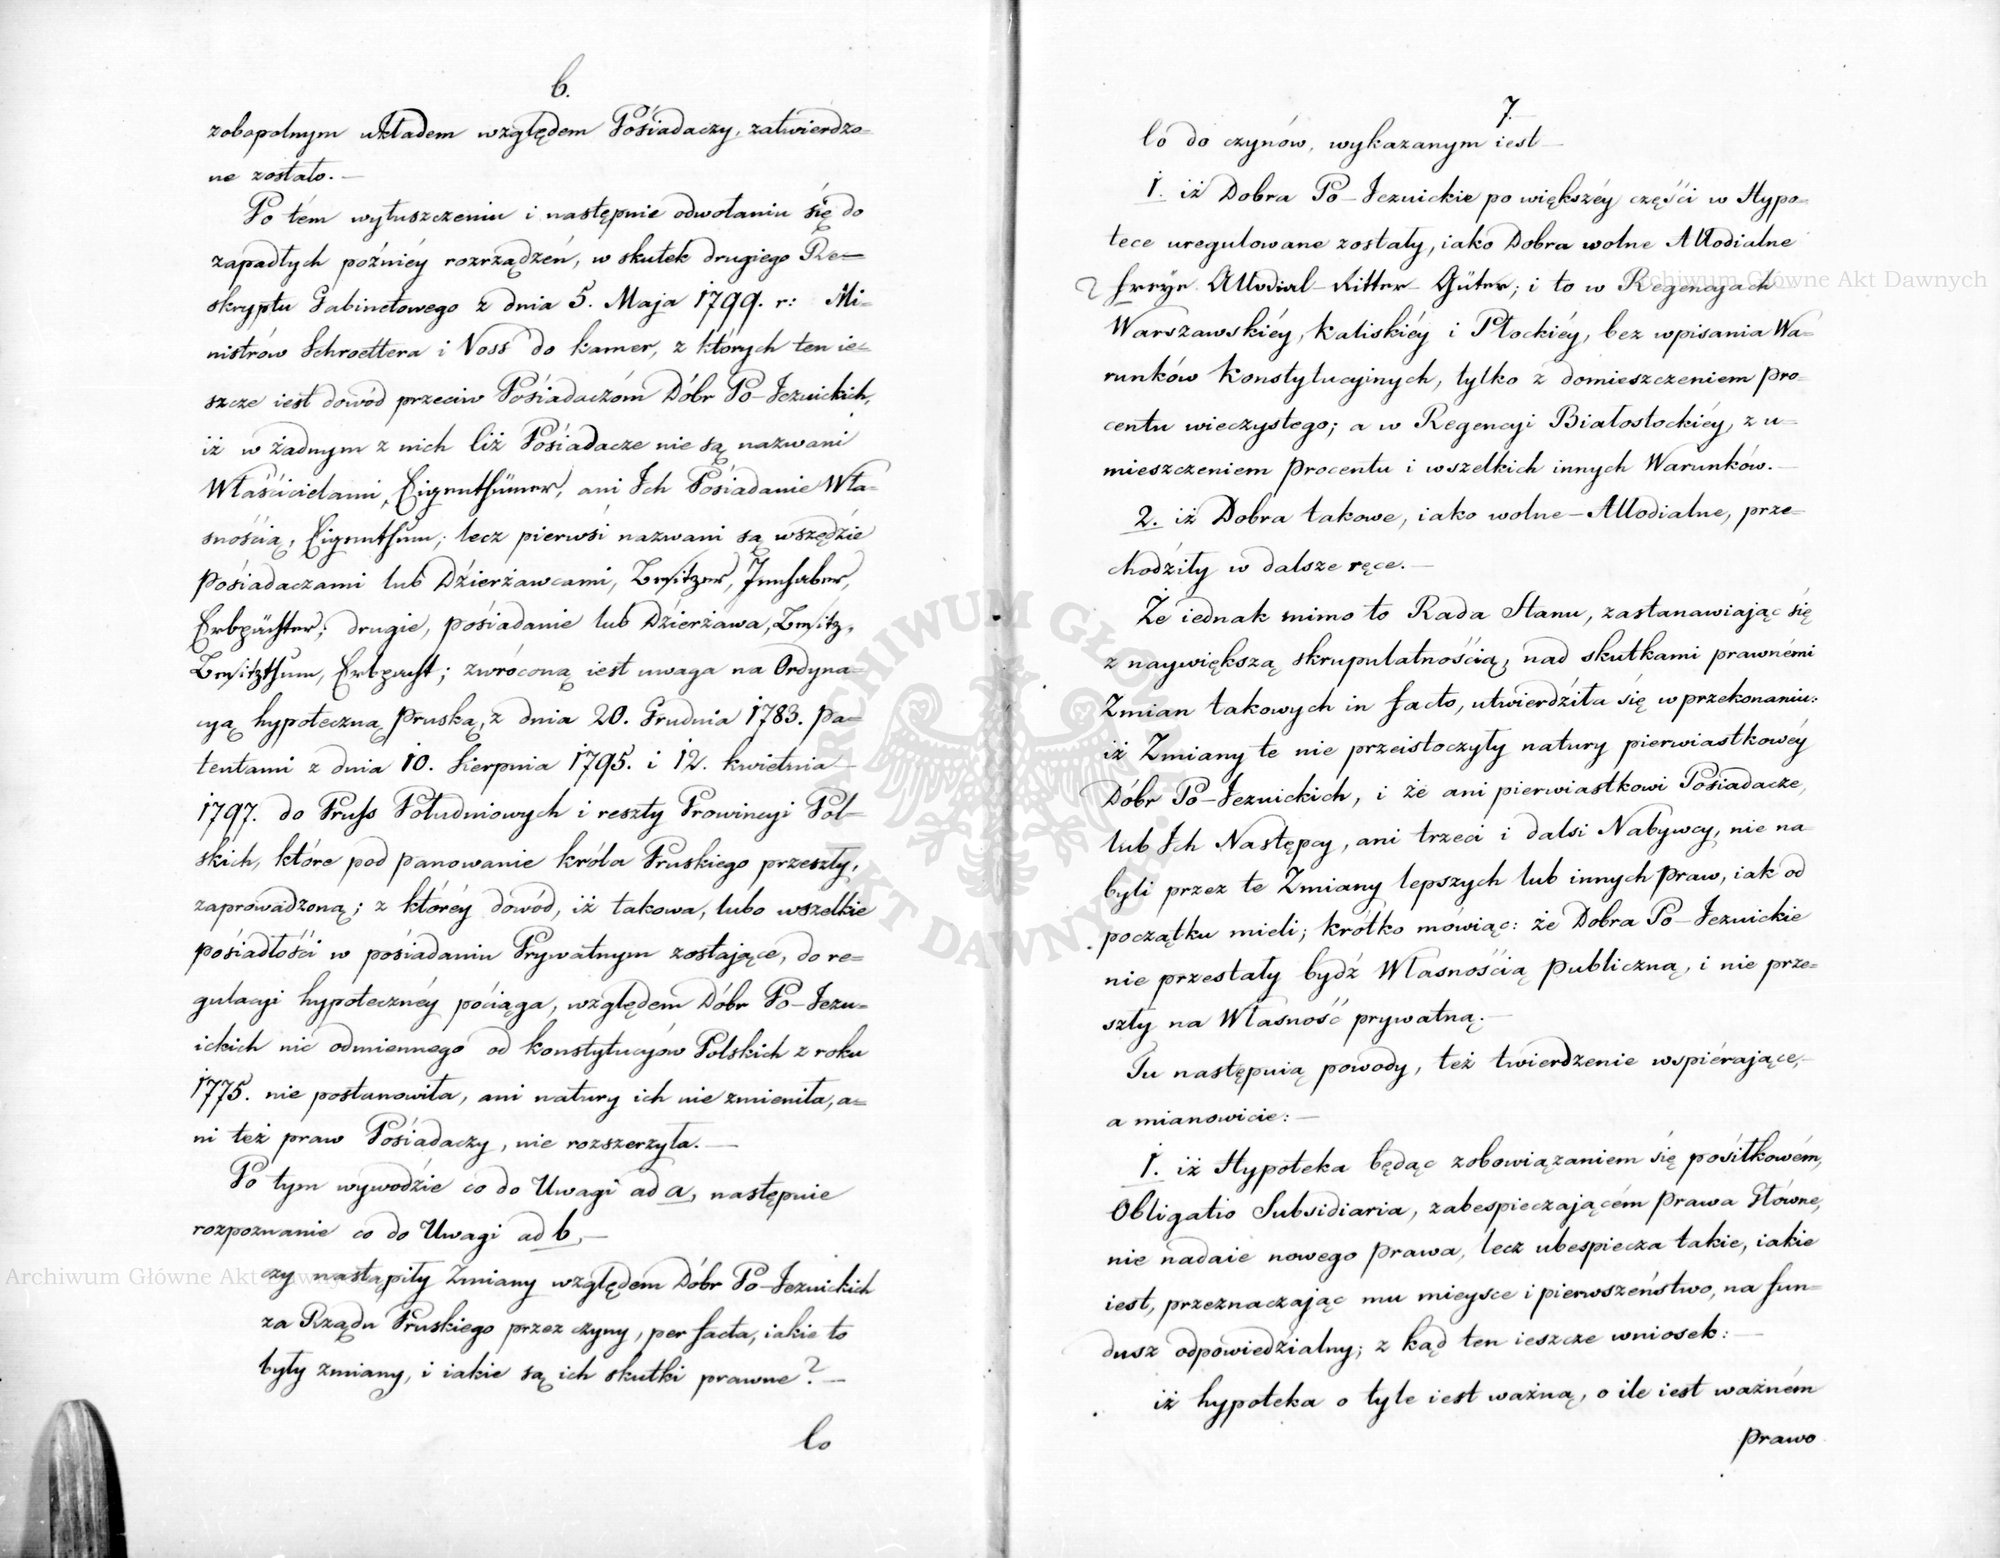 6.
zobopolnym układem względem Pośiadaczy, zatwierdzo=
ne zostało. —
Po tém wyłuszczeniu i następnie odwołaniu się do
zapadłych późniéy rozrządzeń, w skutek drugiego Re=
skryptu Gabinetowego z dnia 5. Maja 1799. r: Mi=
nistrów Schroettera i Voss do kamer, z których ten ie=
szcze iest dowód przeciw Pośiadaczóm Dóbr Po-Jezuickich,
iż w żadnym z nich liż Pośiadacze nie są nazwani
Właścicielami, Eigenthümer, ani Ich Pośiadanie Wła=
snością, Eigenthum; lecz pierwsi nazwani są wszędzie
Pośiadaczami lub Dźierżawcami, Besitzer, Innhaber,
Erbpächter; drugie, pośiadanie lub Dzierżawa, Besitz,
Besitzthum, Erbpacht; zwróconą iest uwaga na Ordyna=
cyą hypoteczną Pruską, z dnia 20. Grudnia 1783. Pa=
tentami z dnia 10. Sierpnia 1795. i 12. kwietnia
1797. do Pruss Południowych i reszty Prowincyi Pol=
skich, które pod panowanie króla Pruskiego przeszły,
zaprowadzoną; z któréy dowód, iż takowa, lubo wszelkie
pośiadłości w pośiadaniu Prywatnym zostające, do re=
gulacyi hypotecznéy pociąga, względem Dóbr Po-Jezu=
ickich nic odmiennego od konstytucyów Polskich z roku
1775. nie postanowiła, ani natury ich nie zmieniła, a=
ni też praw Pośiadaczy, nie rozszerzyła. —
Po tym wywodzie co do Uwagi ad a, następuie
rozpoznanie co do Uwagi ad b, —
czy nastąpiły Zmiany względem Dóbr Po-Jezuickich
za Rządu Pruskiego przez czyny, per facta, iakie to
były zmiany, i iakie są ich skutki prawne? —
Co
7.
Co do czynów, wykazanym iest —
1. iż Dobra Po-Jezuickie po większéy części w Hypo=
tece uregulowane zostały, iako Dobra wolne Allodialne
freye Allodial-Ritter-Güter; i to w Regencyach
Warszawskiéy, Kaliskiéy i Płockiéy, bez wpisania Wa=
runków Konstytucyinych, tylko z domieszczeniem pro=
centu wieczystego; a w Regencyi Białostockiéy, z u=
mieszczeniem Procentu i wszelkich innych Warunków. —
2. iż Dobra takowe, iako wolne-Allodialne, prze=
chodziły w dalsze ręce. —
Że iednak mimo to Rada Stanu, zastanawiając się
z naywiększą skrupulatnością, nad skutkami prawnémi
Zmian takowych in facto, utwierdziła się w przekonaniu:
iż Zmiany te nie przeistoczyły natury pierwiastkowéy
Dóbr Po-Jezuickich, i że ani pierwiastkowi Pośiadacze,
lub Ich Następcy, ani trzeci i dalsi Nabywcy, nie na=
byli przez te Zmiany lepszych lub innych Praw, iak od
początku mieli; krótko mówiąc: że Dobra Po-Jezuickie
nie przestały bydź Własnością publiczną, i nie prze=
szły na Własność prywatną. —
Tu następuią powody, też twierdzenie wspiérające,
a mianowicie: —
1. iż Hypoteka będąc zobowiązaniem się pośiłkowém,
Obligatio Subsidiaria, zabespieczającém Prawa Główne,
nie nadaie nowego Prawa, lecz ubespiecza takie, iakie
iest, przeznaczając mu mieysce i pierwszeństwo, na fun=
dusz odpowiedzialny; z kąd ten ieszcze wniosek: —
iż hypoteka o tyle iest ważną, o ile iest ważném
Prawo
Archiwum Główne Akt Dawnych
Archiwum Główne Akt Dawnych
ARCHIWUM GŁÓWNE AKT DAWNYCH